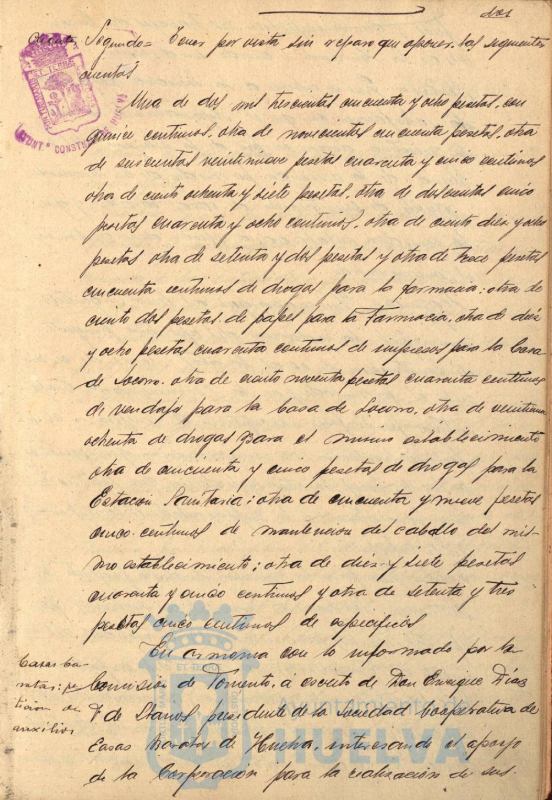 dos
Cuentas Segundo= Tener por vista sin reparo que oponer las siguientes
cuentas
Una de dos mil trescientas cincuenta y ocho pesetas, con
quince centimos, otra de novecientas cincuenta pesetas, otra
de seiscientas veintinueve pesetas cuarenta y cinco centimos
otra de ciento ochenta y siete pesetas, otra de doscientas cinco
pesetas cuarenta y ocho centimos, otra de ciento diez y ocho
pesetas otra de setenta y dos pesetas y otra de trece pesetas
cincuenta centimos de drogas para la farmacia; otra de
ciento dos pesetas de papel para la Farmacia, otra de diez
y ocho pesetas cuarenta centimos de impresos para la Casa
de Socorro, otra de ciento noventa pesetas cuarenta centimos
de vendajes para la Casa de Socorro, otra de
ochenta de drogas para el mismo establecimiento
otra de cincuenta y cinco pesetas de drogas para la
Estacion Sanitaria; otra de cincuenta y nueve pesetas
cinco centimos de mantencion del caballo del mis-
mo establecimiento; otra de diez y siete pesetas
cuarenta y cinco centimos y otra de setenta y tres
pesetas cinco centimos de especificos
Casas ba-
ratas; pe-
ticion de
auxilios
En armonia con lo informado por la
Comision de Fomento, á escrito de Don Enrique Diaz
F. de Llanos, presidente de la Sociedad Cooperativa de
Casas Baratas de Huelva, interesando el apoyo
de la Corporacion para la realizacion de sus
Ayuntamiento de
HUELVA